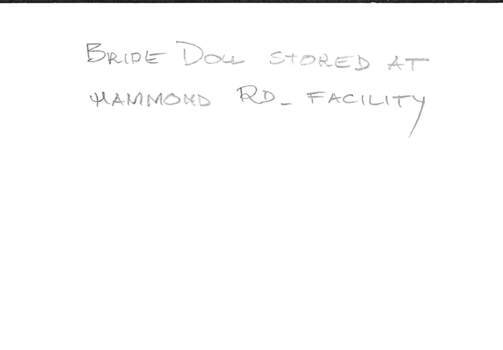 BRIDE DOLL STORED AT
HAMMOND RD_ FACILITY